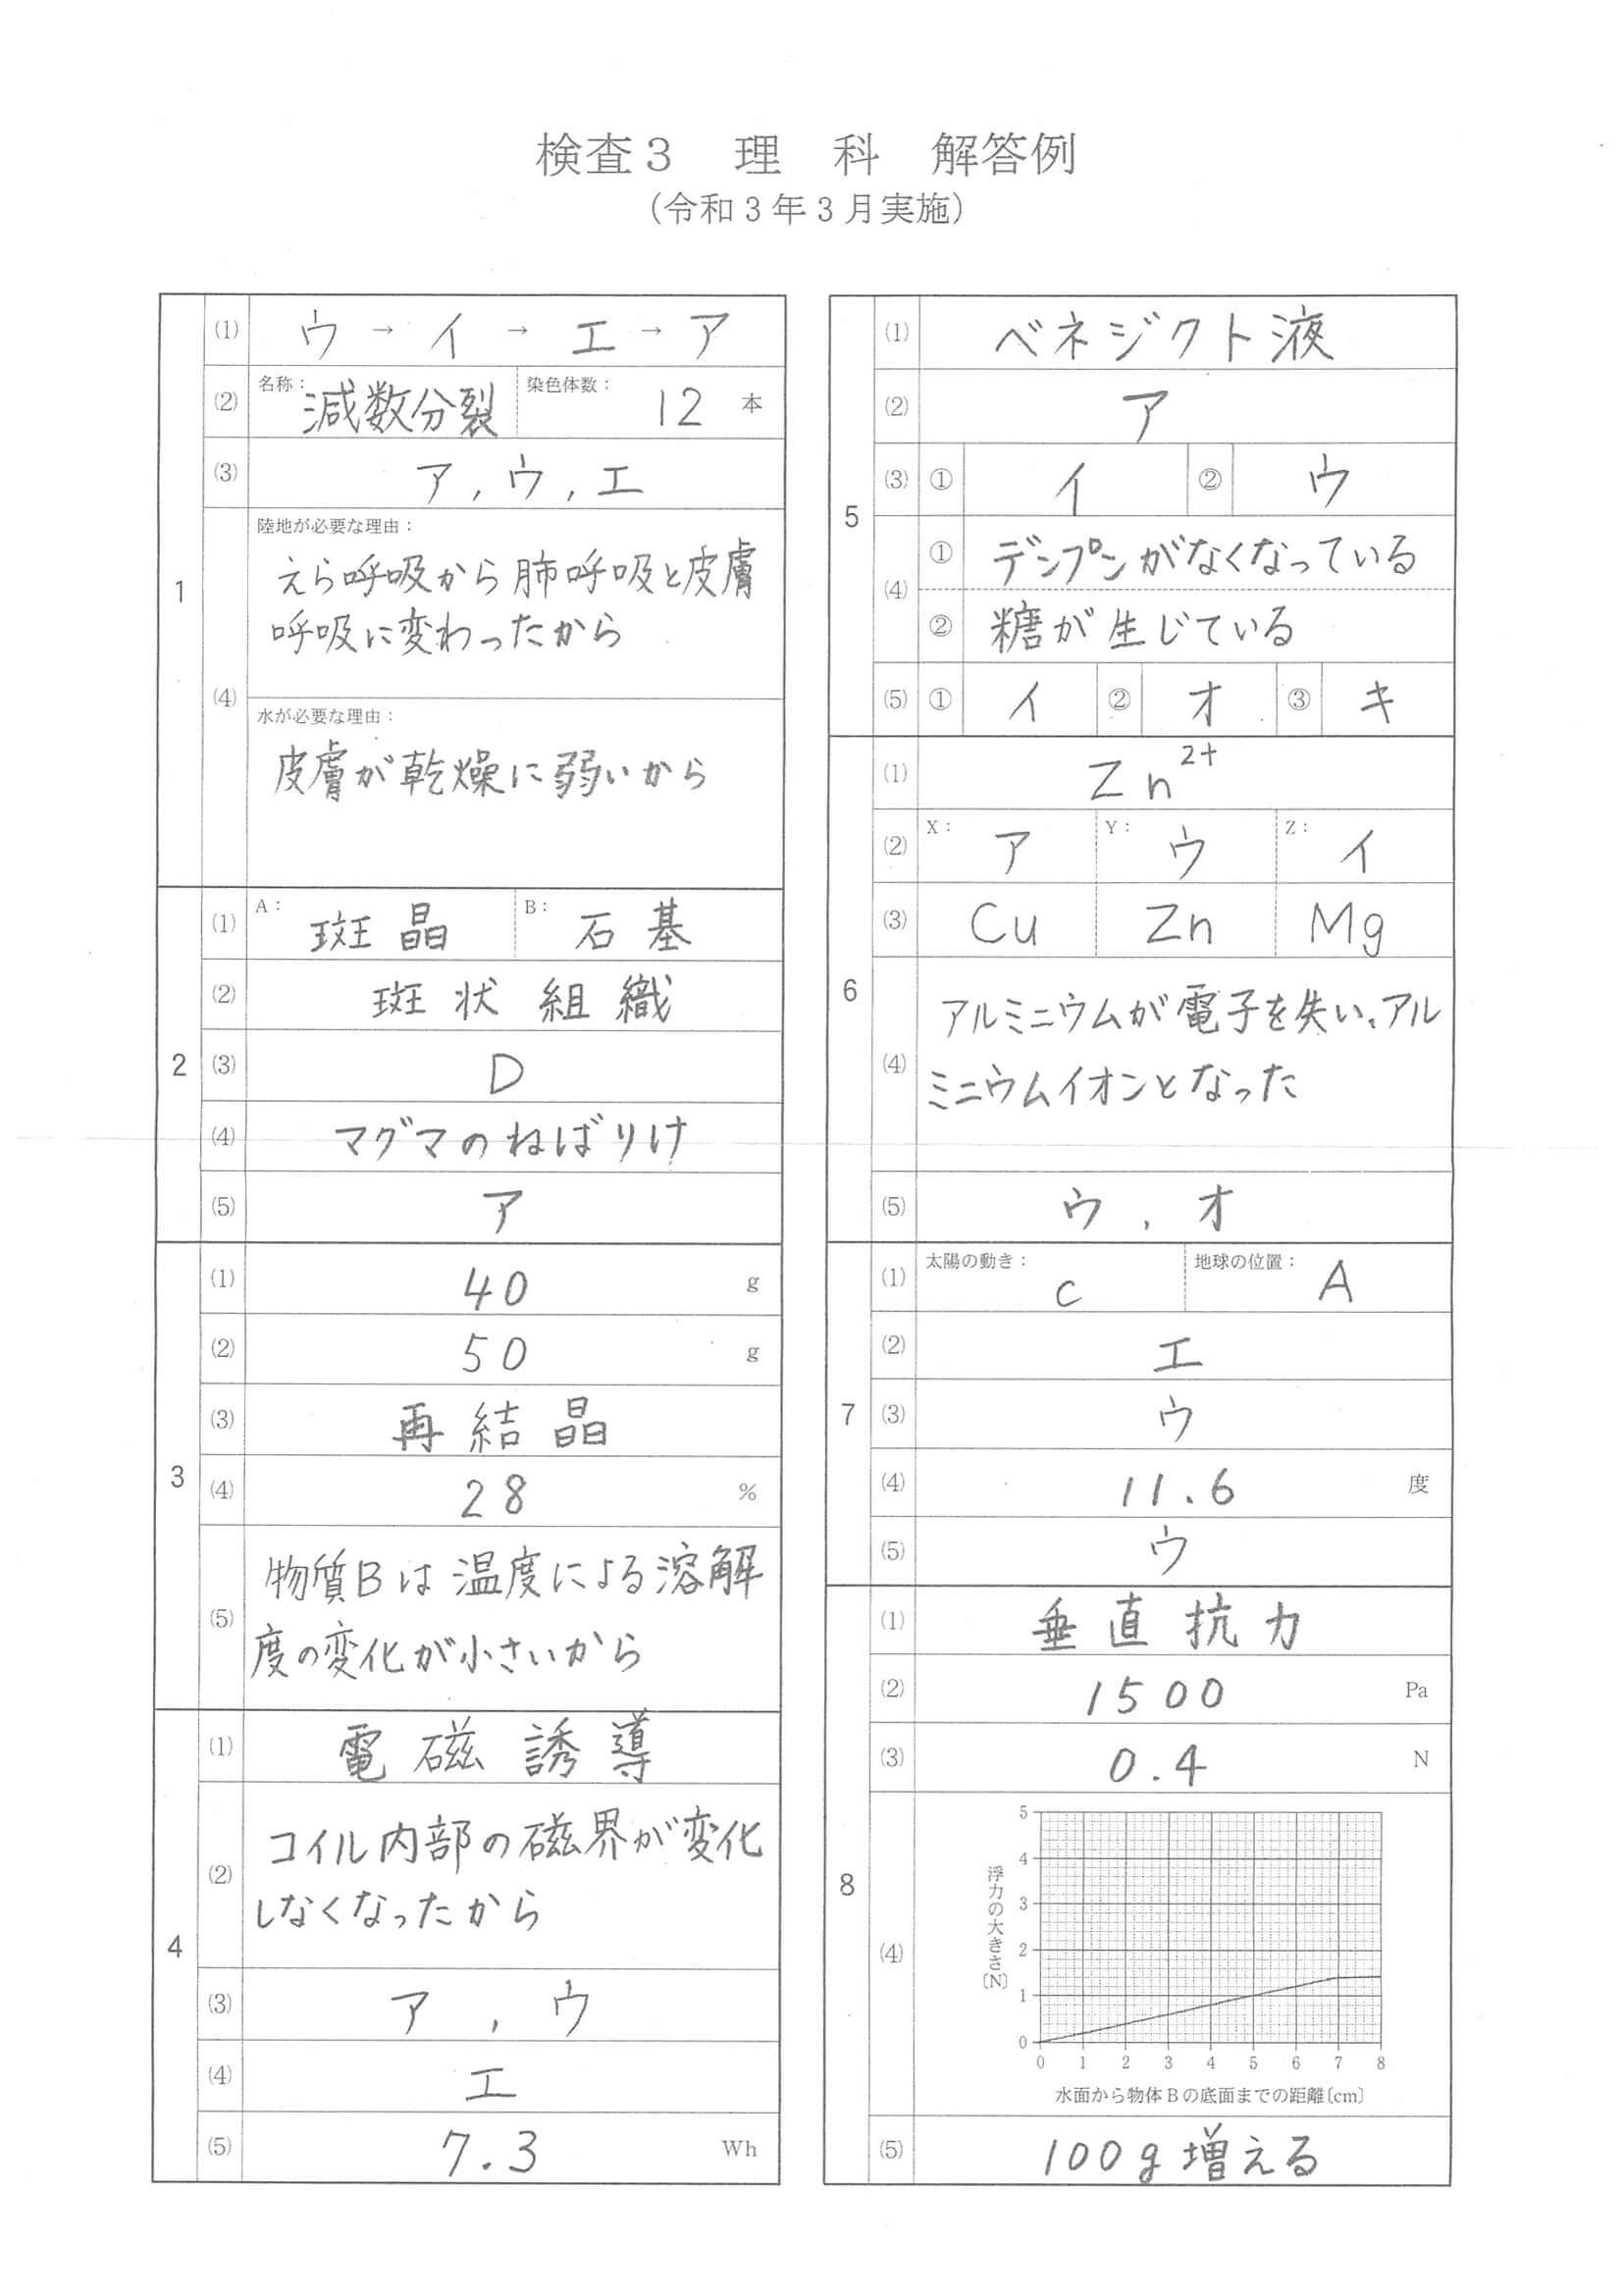 検査3 理科 解答例
(令和3年3月実施)
1
(1) ウ → イ → エ → ア
(2) 名称: 減数分裂 染色体数: 12 本
(3) ア, ウ, エ
(4) 陸地が必要な理由:
えら呼吸から肺呼吸と皮膚
呼吸に変わったから
水が必要な理由:
皮膚が乾燥に弱いから
2
(1) A: 斑晶 B: 石基
(2) 斑状組織
(3) D
(4) マグマのねばりけ
(5) ア
3
(1) 40 g
(2) 50 g
(3) 再結晶
(4) 28 %
(5) 物質Bは温度による溶解
度の変化が小さいから
4
(1) 電磁誘導
(2) コイル内部の磁界が変化
しなくなったから
(3) ア, ウ
(4) エ
(5) 7.3 Wh
5
(1) ベネジクト液
(2) ア
(3) ① イ ② ウ
(4) ① デンプンがなくなっている
② 糖が生じている
(5) ① イ ② オ ③ キ
6
(1) Zn²⁺
(2) X: ア Y: ウ Z: イ
(3) Cu Zn Mg
(4) アルミニウムが電子を失い、アル
ミニウムイオンとなった
(5) ウ, オ
7
(1) 太陽の動き: c 地球の位置: A
(2) エ
(3) ウ
(4) 11.6 度
(5) ウ
8
(1) 垂直抗力
(2) 1500 Pa
(3) 0.4 N
(4)
浮力の大きさ〔N〕
5
4
3
2
1
0
0 1 2 3 4 5 6 7 8
水面から物体Bの底面までの距離〔cm〕
(5) 100g増える